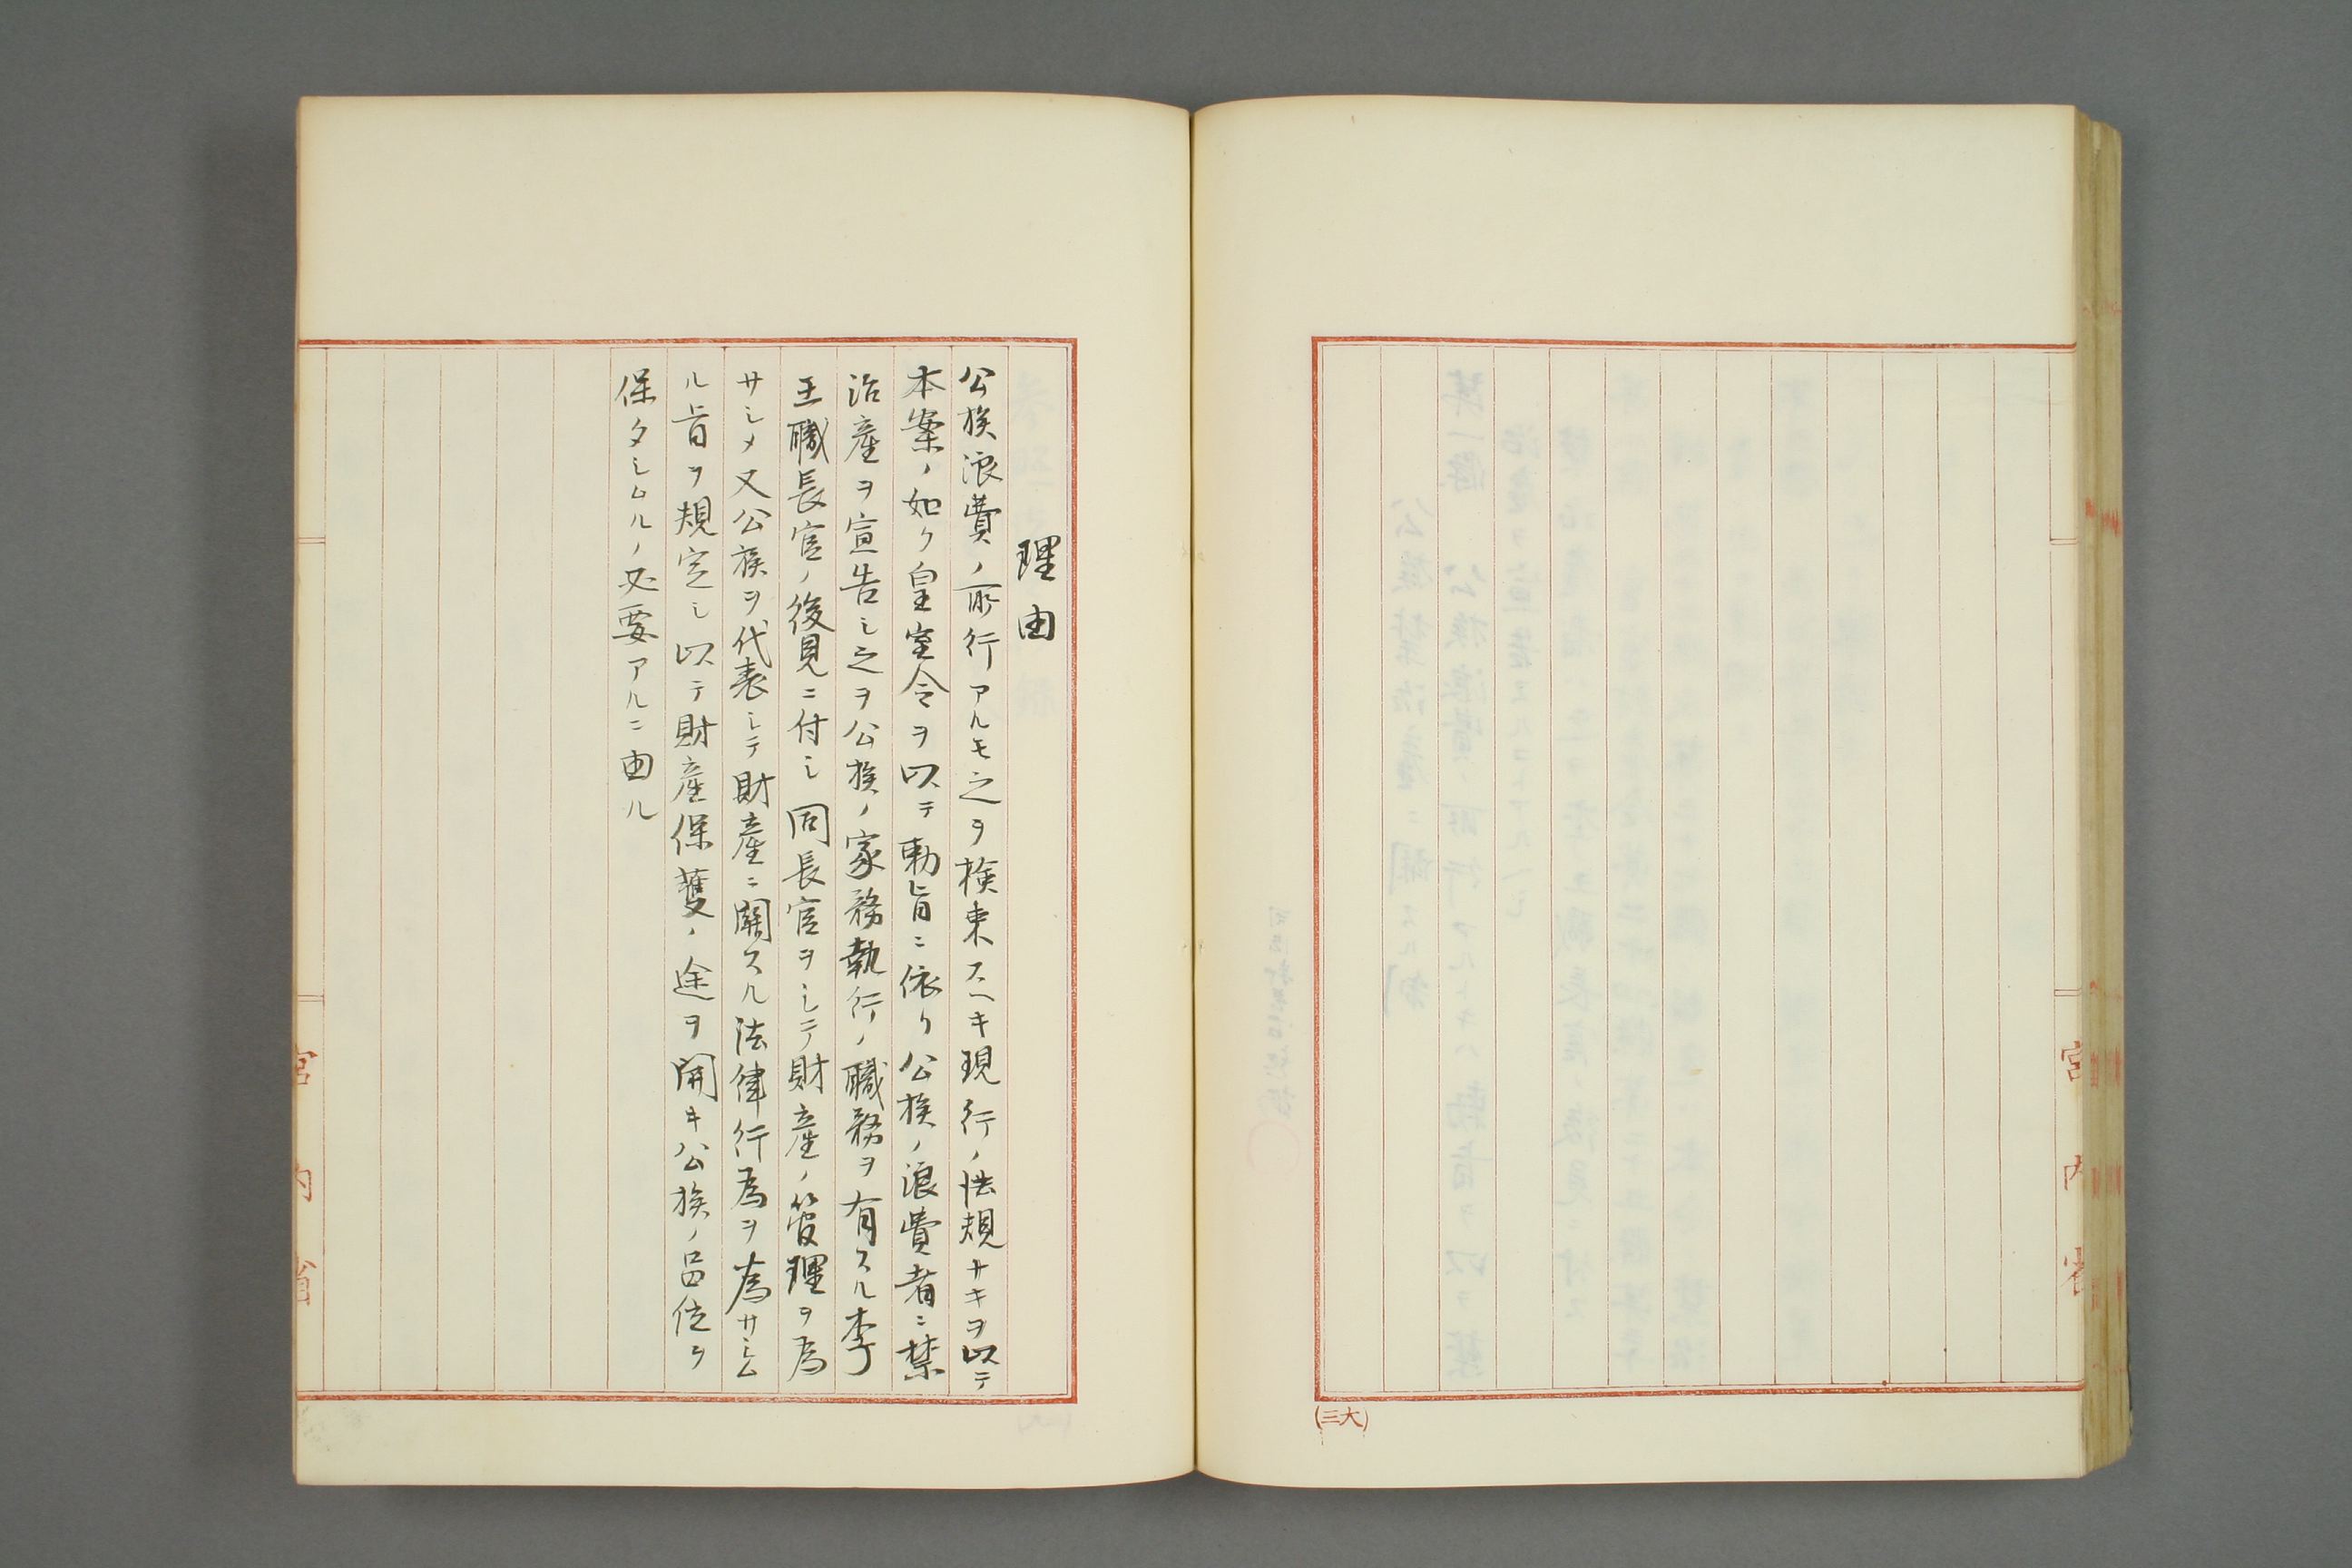 宮内省
(三大)
理由
公族浪費ノ所行アルモ之ヲ検束スヘキ現行ノ法規ナキヲ以テ
本案ノ如ク皇室令ヲ以テ勅旨ニ依リ公族ノ浪費者ニ禁
治産ヲ宣告シ之ヲ公族ノ家務執行ノ職務ヲ有スル李
王職長官ノ後見ニ付シ同長官ヲシテ財産ノ管理ヲ為
サシメ又公族ヲ代表シテ財産ニ關スル法律行為ヲ為サシム
ル旨ヲ規定シ以テ財産保護ノ途ヲ開キ公族ノ品位ヲ
保タシムルノ必要アルニ由ル
宮内省